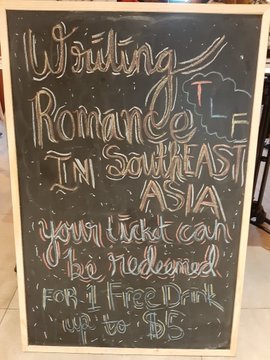 Writing
TLF
Romance
IN SouthEAST
ASIA
your ticket can
be redeemed
FOR 1 Free Drink
up to $5